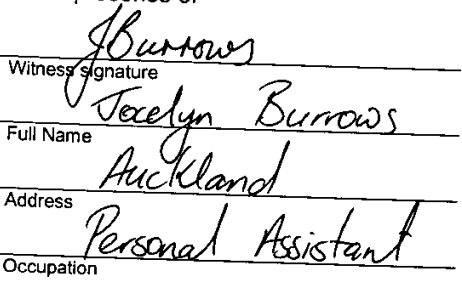 JBurrows
Witness signature
Jocelyn Burrows
Full Name
Auckland
Address
Personal Assistant
Occupation